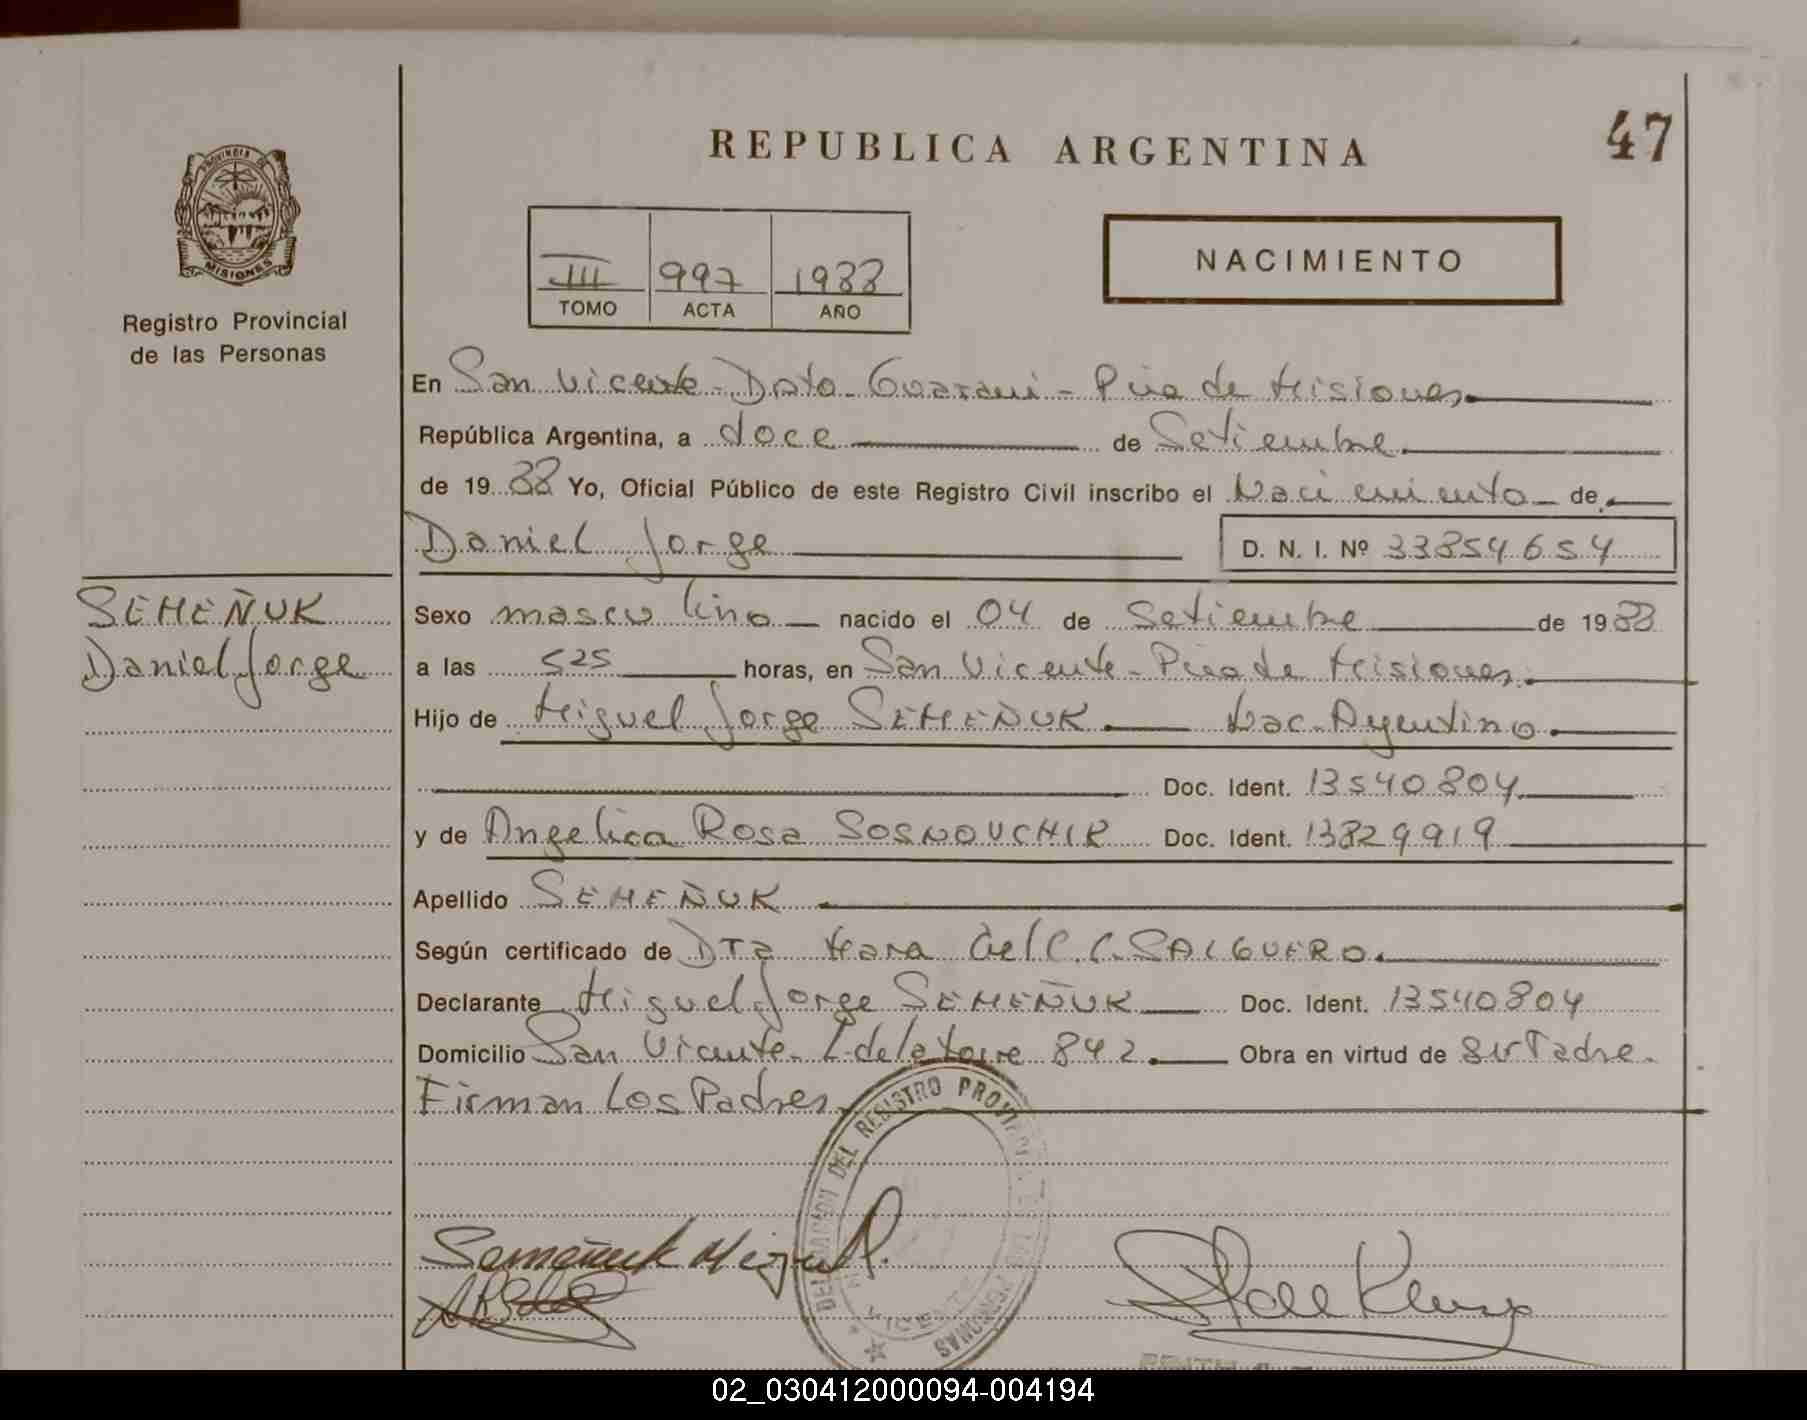 47
REPUBLICA ARGENTINA
PROVINCIA DE
MISIONES
Registro Provincial
de las Personas
III 997 1988
TOMO ACTA AÑO
NACIMIENTO
En San Vicente - Dpto - Guaraní - Pcia de Misiones
República Argentina, a doce de Setiembre
de 1988 Yo, Oficial Público de este Registro Civil inscribo el Nacimiento de
Daniel Jorge D. N. I. Nº 33854654
SEMEÑUK
Daniel Jorge
Sexo masculino nacido el 04 de Setiembre de 1988
a las 525 horas, en San Vicente - Pcia de Misiones
Hijo de Miguel Jorge SEMEÑUK Nac. Argentino
Doc. Ident. 13540804
y de Angelica Rosa Doc. Ident. 13829919
Apellido SEMEÑUK
Según certificado de Dra Mara del C. C. SALGUERO.
Declarante Miguel Jorge SEMEÑUK Doc. Ident. 13540804
Domicilio San Vicente - L. de la torre 842. Obra en virtud de su Padre.
Firman los Padres
DELEGACION DEL REGISTRO PROVINCIAL DE LAS PERSONAS
Semeñuk Miguel J.
02_030412000094-004194